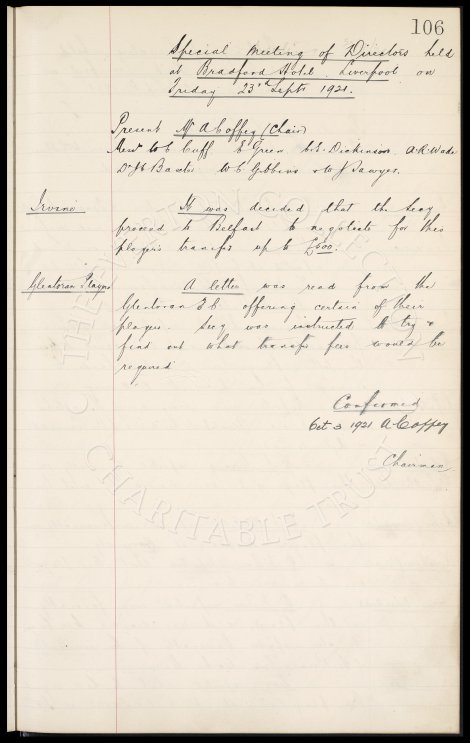 106
Special Meeting of Directors held
at Bradford Hotel. Liverpool on
Friday 23rd Septr 1921.
Present Mr A Coffey (Chair)
Messrs W C Cuff E Green H. E. Dickinson A.R. Wade
Dr J C Baxter W C Gibbins & W J Sawyer.
Irvine
It was decided that the Secy
proceed to Belfast to negotiate for this
players transfer up to £500.
Glentoran Players
A letter was read from the
Glentoran F.C offering certain of their
players. Secy was instructed to try &
find out what transfer fees would be
required
Confirmed
Oct 3 1921 A Coffey
Chairman
THE EVERTON COLLECTION
CHARITABLE TRUST